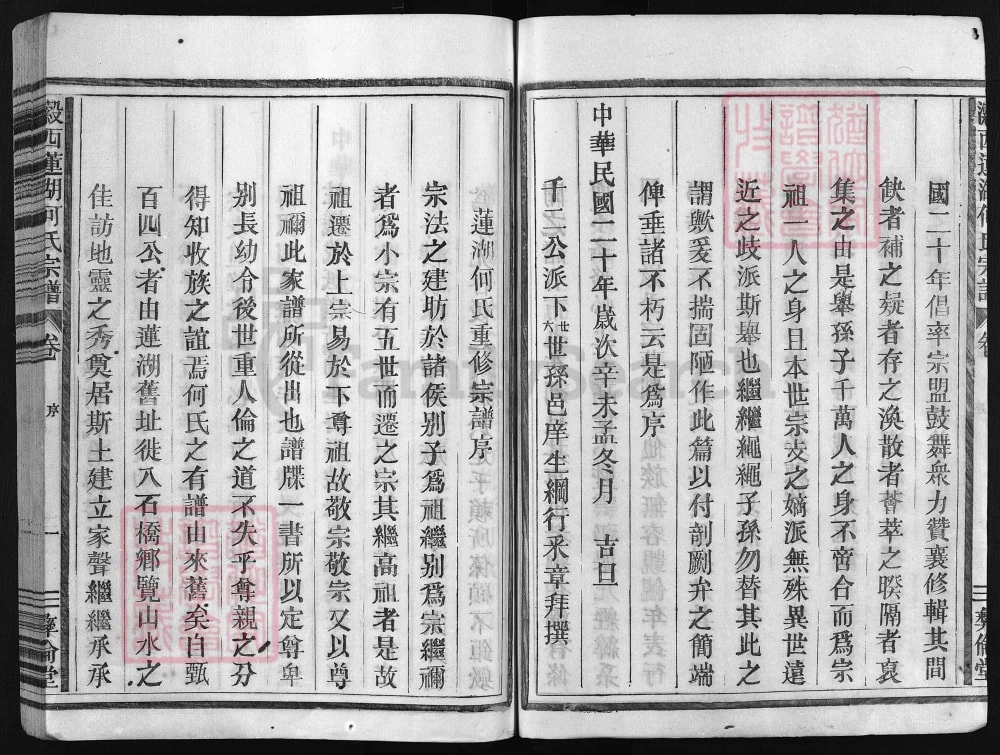 國二十年倡率宗盟鼓舞衆力贊襄修輯其間
缺者補之疑者存之渙散者薈萃之暌隔者裒
集之由是舉孫子千萬人之身不啻合而爲宗
祖一人之身且本世宗支之嫡派無殊異世遠
近之歧派斯舉也繼繼繩繩子孫勿替其此之
謂歟爰不揣固陋作此篇以付剞劂弁之簡端
俾垂諸不朽云是爲序
中華民國二十年歲次辛未孟冬月 吉旦
千二公派下廿六世孫邑庠生綱行釆章拜撰
彝倫堂
蓮湖何氏重修宗譜序
宗法之建昉於諸侯别子爲祖繼别爲宗繼禰
者爲小宗有五世而遷之宗其繼高祖者是故
祖遷於上宗易於下尊祖故敬宗敬宗又以尊
祖禰此家譜所從出也譜牒一書所以定尊卑
别長幼令後世重人倫之道不失乎尊親之分
得知收族之誼焉何氏之有譜由來舊矣自甄
百四公者由蓮湖舊址徙入石橋鄉覽山水之
佳訪地靈之秀奠居斯土建立家聲繼繼承承
縠西蓮湖何氏宗譜 卷 序 一 彝倫堂
FamilySearch